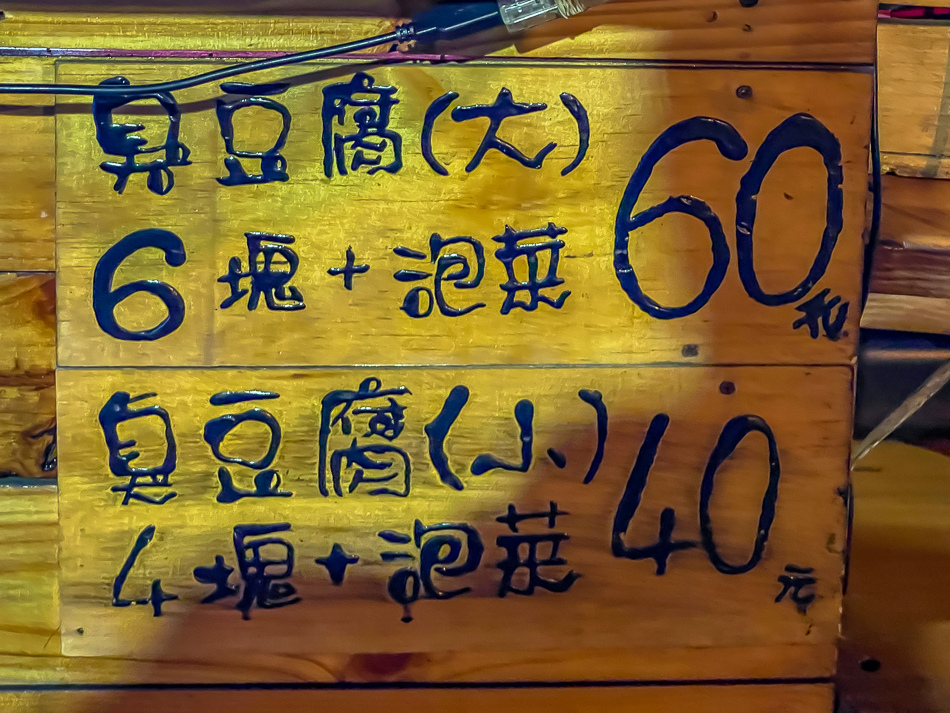 臭豆腐(大) 60元
6塊+泡菜
臭豆腐(小) 40元
4塊+泡菜